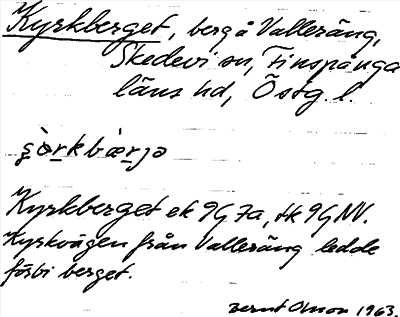 Kyrkberget, berg å Valleräng,
Skedevi sn, Finspånga
läns hd, Östg. l.
ʂò̠rkbæ̀rjə
Kyrkberget ek 9G 7a, tk 9G NV.
Kyrkvägen från Valleräng ledde
förbi berget.
Bernt Olsson 1963.